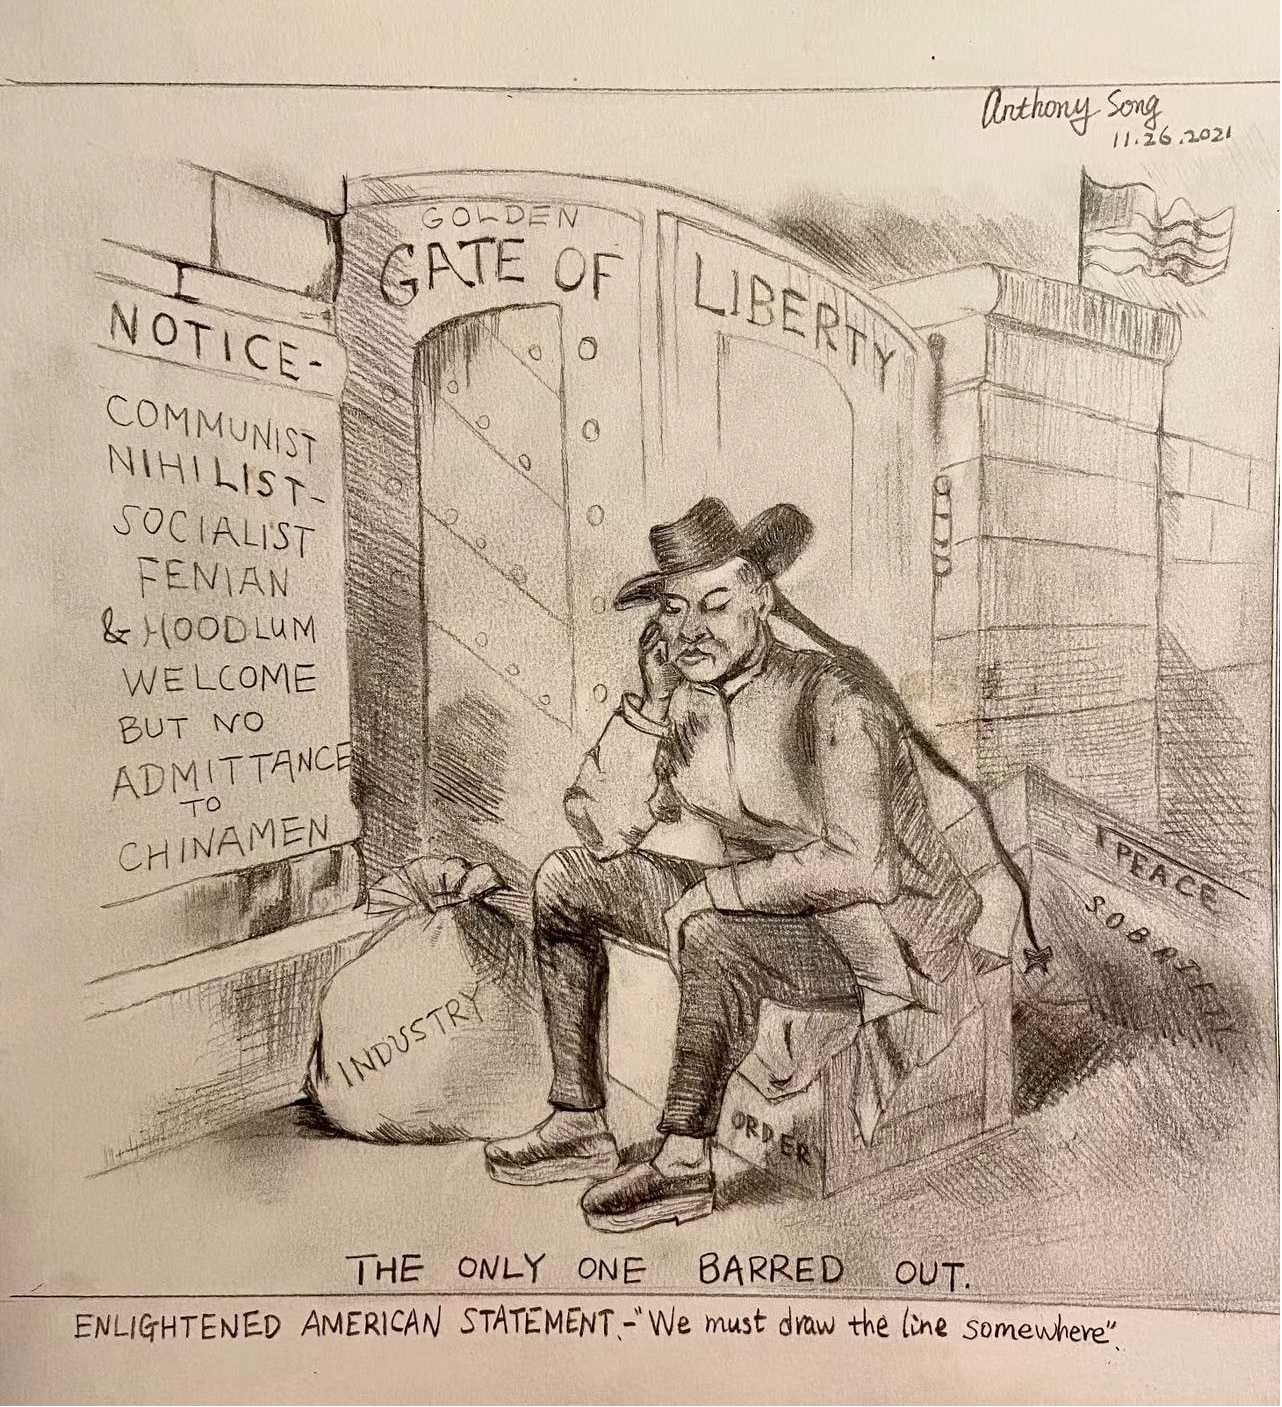 Anthony Song
11.26.2021
GOLDEN
GATE OF LIBERTY
NOTICE-
COMMUNIST
NIHILIST-
SOCIALIST
FENIAN
& HOODLUM
WELCOME
BUT NO
ADMITTANCE
TO
CHINAMEN
PEACE
SOBRIETY
INDUSTRY
ORDER
THE ONLY ONE BARRED OUT.
ENLIGHTENED AMERICAN STATEMENT.-"We must draw the line somewhere".